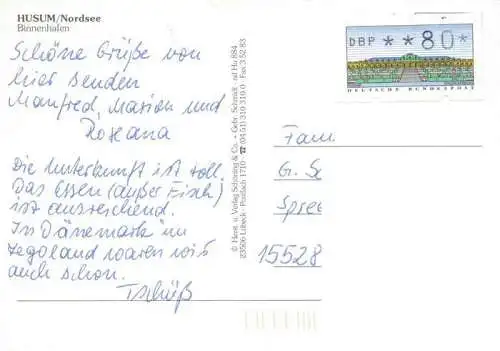 HUSUM/Nordsee
Binnenhafen
Schöne Grüße von
hier senden
Manfred, Marion und
Roxana
Die Unterkunft ist toll.
Das Essen (außer Fisch)
ist ausreichend.
In Dänemark im
Legoland waren wir
auch schon.
Tschüß
© Herst. u. Verlag Schöning & Co. + Gebr. Schmidt · nd Hu 884
23506 Lübeck · Postfach 1710 · ☎ (04 51) 310 310 · Fax 3 52 83
DBP **80*
DEUTSCHE BUNDESPOST
Fam
G. Sc
Spree
15528